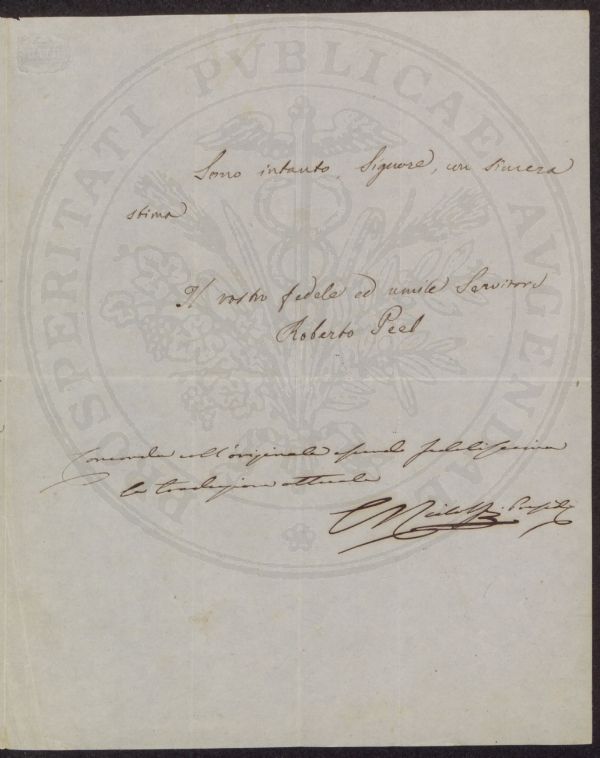 PROSPERITATI PVBLICAE AVGENDAE
Sono intanto, Signore, con sincera
stima
Il vostro fedele ed umile Servitore
Roberto Peel
Concorda coll'originale essendo fedelissima
la traduzione attuale